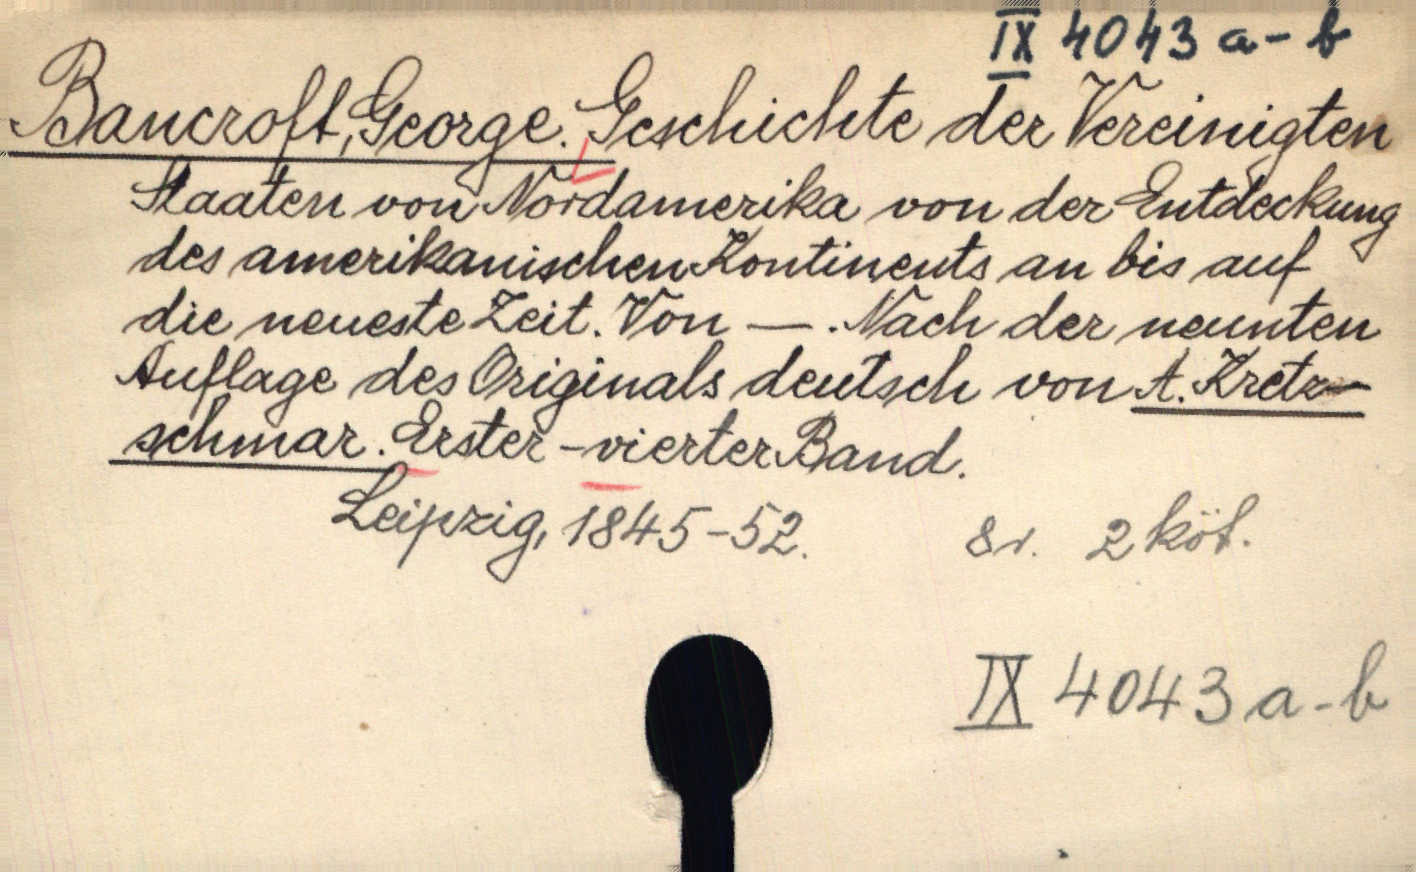 IX 4043 a-b
Bancroft, George. Geschichte der Vereinigten
Staaten von Nordamerika von der Entdeckung
des amerikanischen Kontinents an bis auf
die neueste Zeit. Von —. Nach der neunten
Auflage des Originals deutsch von A. Kretz-
schmar. Erster-vierter Band.
Leipzig, 1845-52. 8r. 2 köt.
IX 4043 a-b